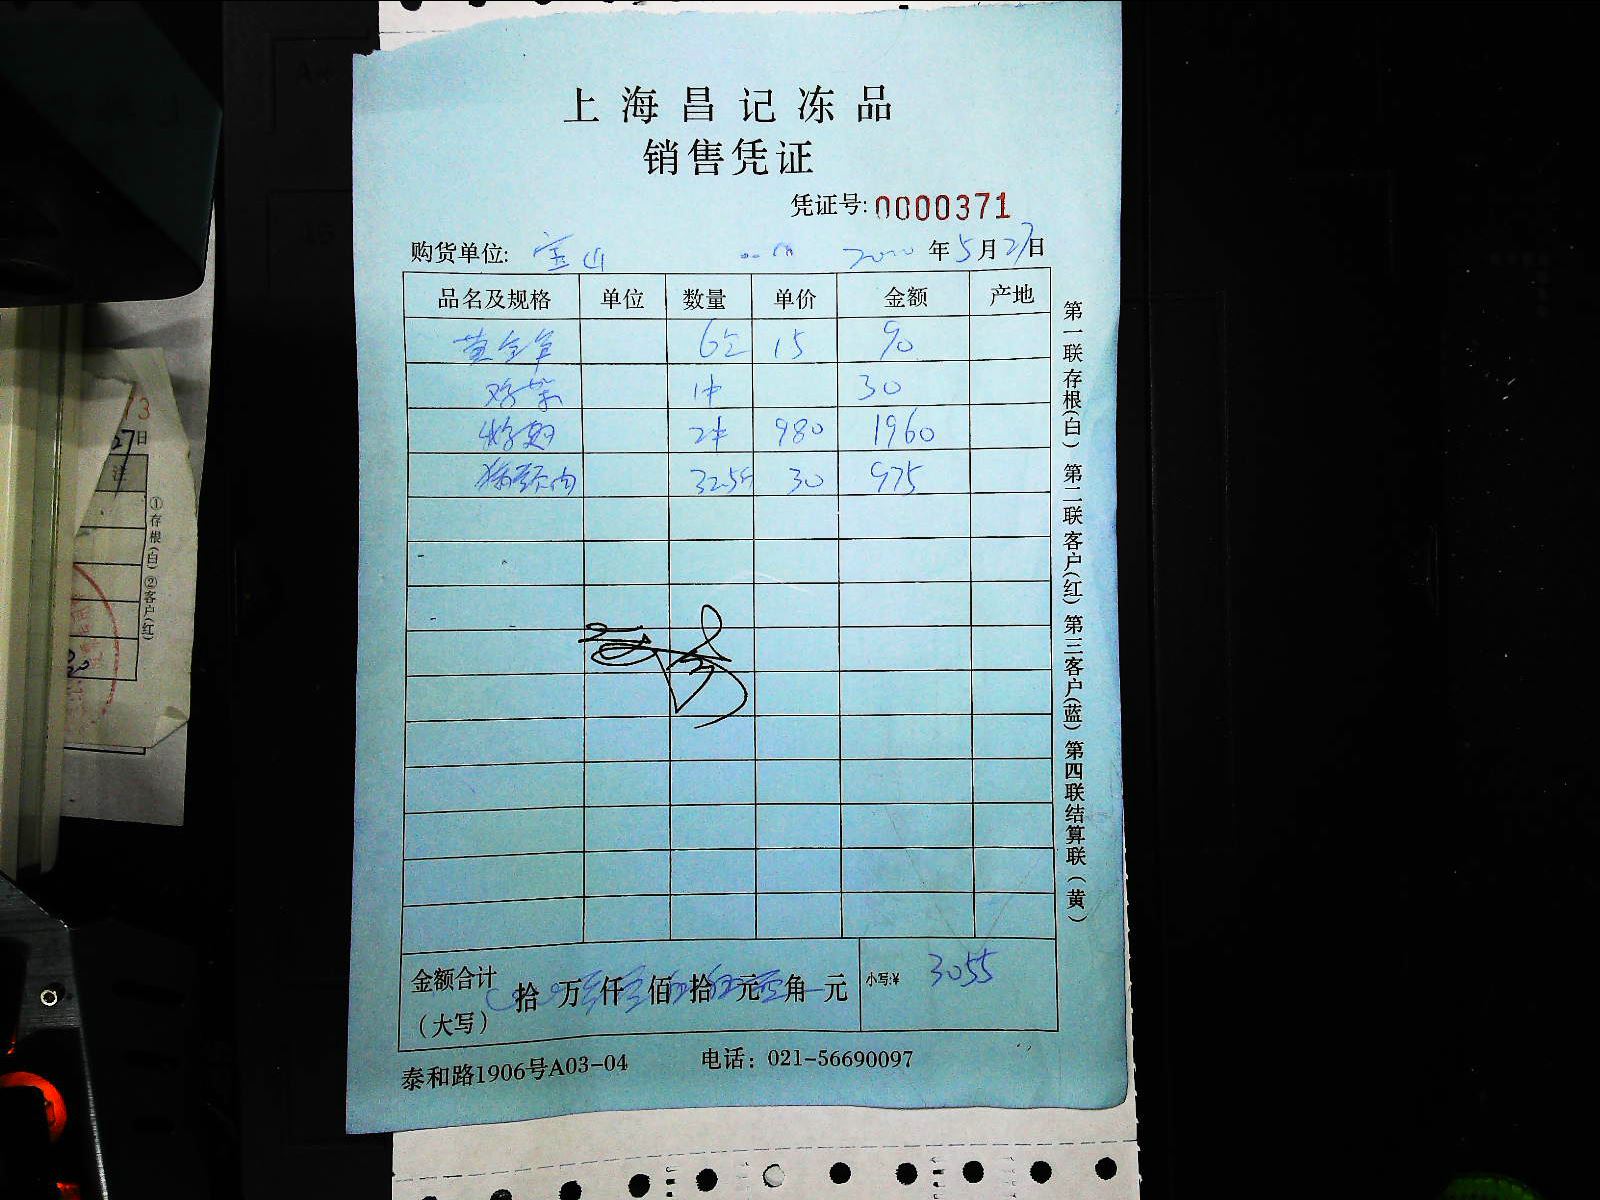 上海昌记冻品
销售凭证
凭证号: 0000371
购货单位: 宝山 2020 年 5 月 27 日
品名及规格 单位 数量 单价 金额 产地
黄金笋 6包 15 90
鸡架 1件 30
2件 980 1960
猪颈肉 32.5斤 30 975
金额合计
(大写)
拾 万 仟 佰 拾 元 角 元
小写:¥ 3055
泰和路1906号A03-04 电话: 021-56690097
第一联 存根(白) 第二联 客户(红) 第三客户(蓝) 第四联结算联(黄)
27日
注
①存根(白) ②客户(红)